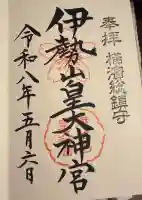 奉拝
横濱総鎮守
伊勢山皇大神宮
令和八年五月六日